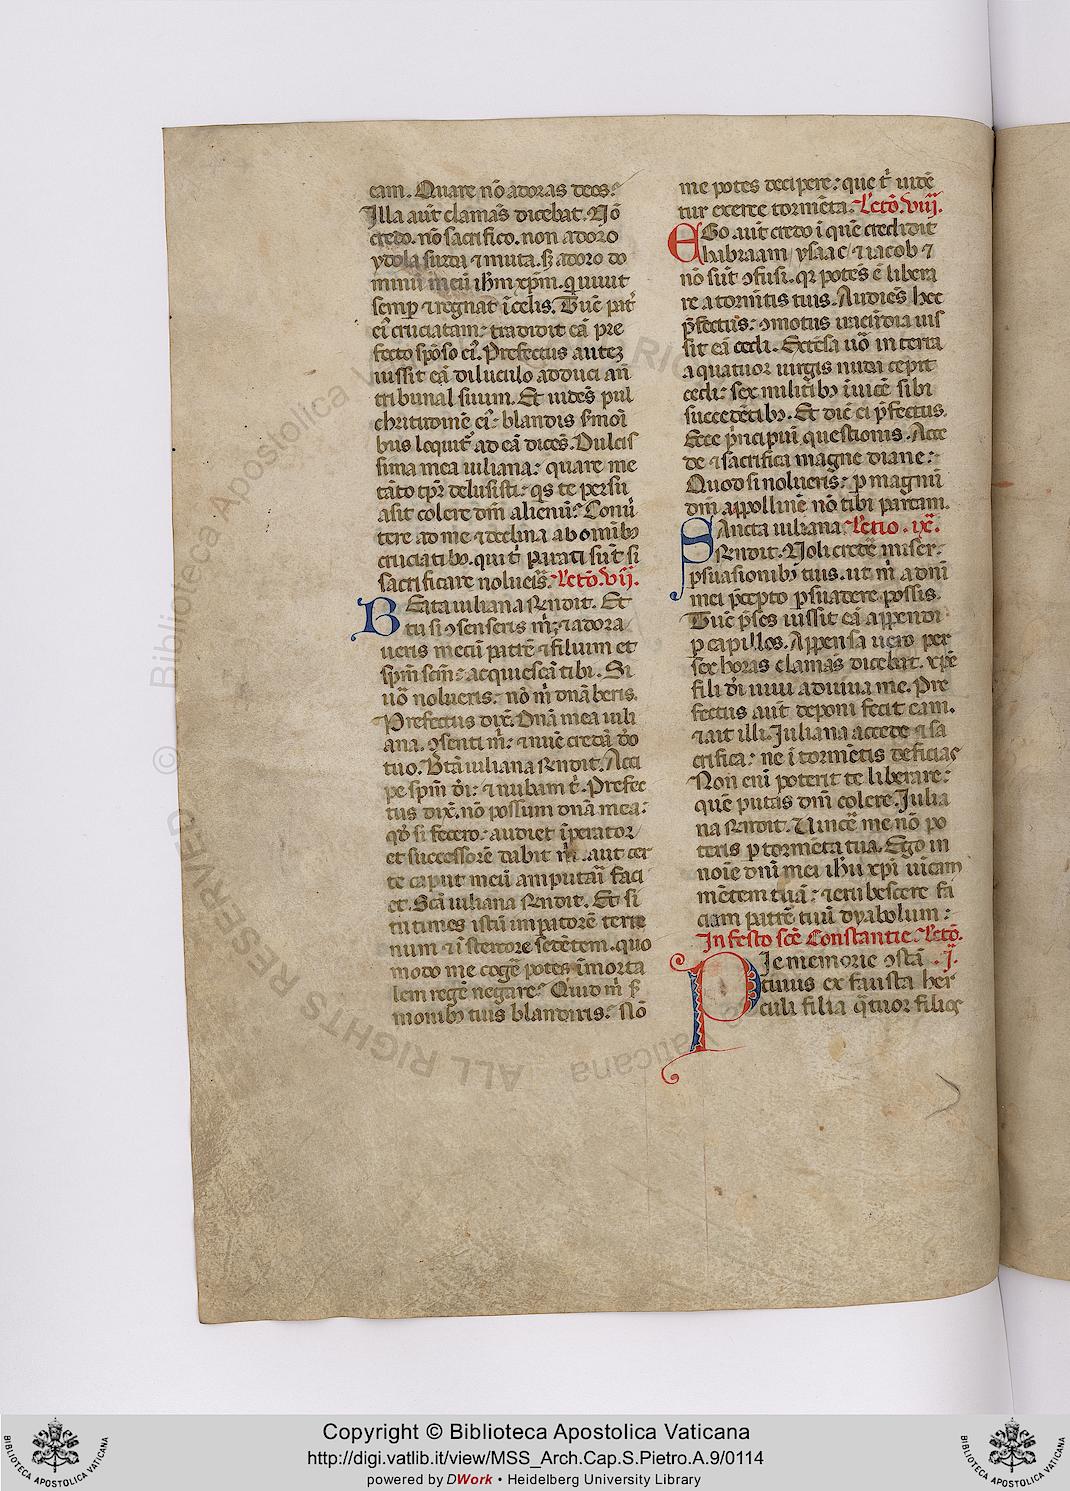 eam. Quare nō adoras deos.
Illa aut̄ clamās dicebat. Nō
credo. nō sacrifico. non adoro
ydola surda ⁊ muta. sꝫ adoro do
minū meū ih̄m xp̄m. qui uiuit
semꝑ ⁊ regnat ī celis. Tūc pat̾
ei᾽ cruciatam: tradidit eā pre
fecto spōso ei᾽. Prefectus autez
iussit eā diluculo adduci añ
tribunal suum. Et uidēs pul
chritudinē ei᾽: blandis s̾moī
bus loquit̾ ad eā dicēs. Dulcis
sima mea iuliana: quare me
tāto tp̄r delusisti: qs te persu
asit colere dm̄ alienū: Conū
tere ad me ⁊ declina ab oīnibꝰ
cruciatibꝰ. qui t̾ parati sūt si
sacrificare nolueīs. Lectō. vij.
BEata iuliana rn̄dit. Et
tu si ꝯsenseris m̾. ⁊ adora
ueris mecū patrē ⁊ filium et
sp̄m sc̄m: acquiescā tibi. Si
uō nolueris: nō m̾ dn̄aberis.
Prefectus dix̄. Dn̄a mea iuli
ana. ꝯsenti m̾: ⁊ nūc credā dō
tuo. Btā iuliana rn̄dit. Acci
pe spm̄ dī: ⁊ nubam t̾. Prefec
tus dix̄. nō possum dn̄a mea:
qđ si fecero: audiet īperator
et successorē dabit m̾. aut cer
te caput meū amputaū faci
et. Scā iuliana rn̄dit. Et si
tu times istū imꝑatorē terre
num ⁊ ī stercore sedētem. quo
modo me cogē potes īmorta
lem regē negare: Quid m̾ s̾
monibꝰ tuis blandiris: Nō
me potes decipere: que t̾ uidē
tur exerce tormēta. Lectō. viij.
EGo aut̄ credo ī quē credidit
habraam ysaac ⁊ iacob ⁊
nō sūt ꝯfusi. qr potēs ē libera
re a tormētis tuis. Audiēs hec
p̄fectus: ꝯmotus iracūdia iuſ
sit eā cedi. Extēsa uō in terra
a quatuor uirgis nuda cepit
cedi: sex militibꝰ īuicē sibi
succedētibꝰ. Et dic̄ ei p̄fectus.
Ecce p̄ncipiū questionis. Acce
de ⁊ sacrifica magne diane:
Quod si nolueris: ꝑ magnū
dm̄ appollinē nō tibi parcam.
SAncta iuliana Lectio. ix.
rn̄dit. Noli credē miser.
ꝑsuasionibꝰ tuis. ut m̾ a dn̄i
mei p̄cepto ꝑsuadere possis.
Tūc p̄ses iussit eā appendi
ꝑ capillos. Appensa uero per
sex horas clamās dicebat. xp̄e
fili dī uiui adiuua me. Pre
fectus aut̄ deponi fecit eam.
⁊ ait illi. Iuliana accede ⁊ sa
crifica: ne ī tormētis deficias
Non enī poterit te liberare:
quē putas dm̄ colere. Iulia
na rn̄dit. Uincē me nō po
teris ꝑ tormēta tua. Ego in
noīe dn̄i mei ih̄u xp̄i uīcam
mētem tuā: ⁊ erubescere fa
ciam patrē tuū dyabolum:
In festo scē Constantie. Lectō.
PIe memorie ꝯstā .j.
tinus ex fausta her
culi filia q̄tuor filios
Copyright © Biblioteca Apostolica Vaticana
http://digi.vatlib.it/view/MSS_Arch.Cap.S.Pietro.A.9/0114
powered by DWork • Heidelberg University Library
BIBLIOTECA APOSTOLICA VATICANA
BIBLIOTECA APOSTOLICA VATICANA
© Biblioteca Apostolica Vaticana ALL RIGHTS RESERVED